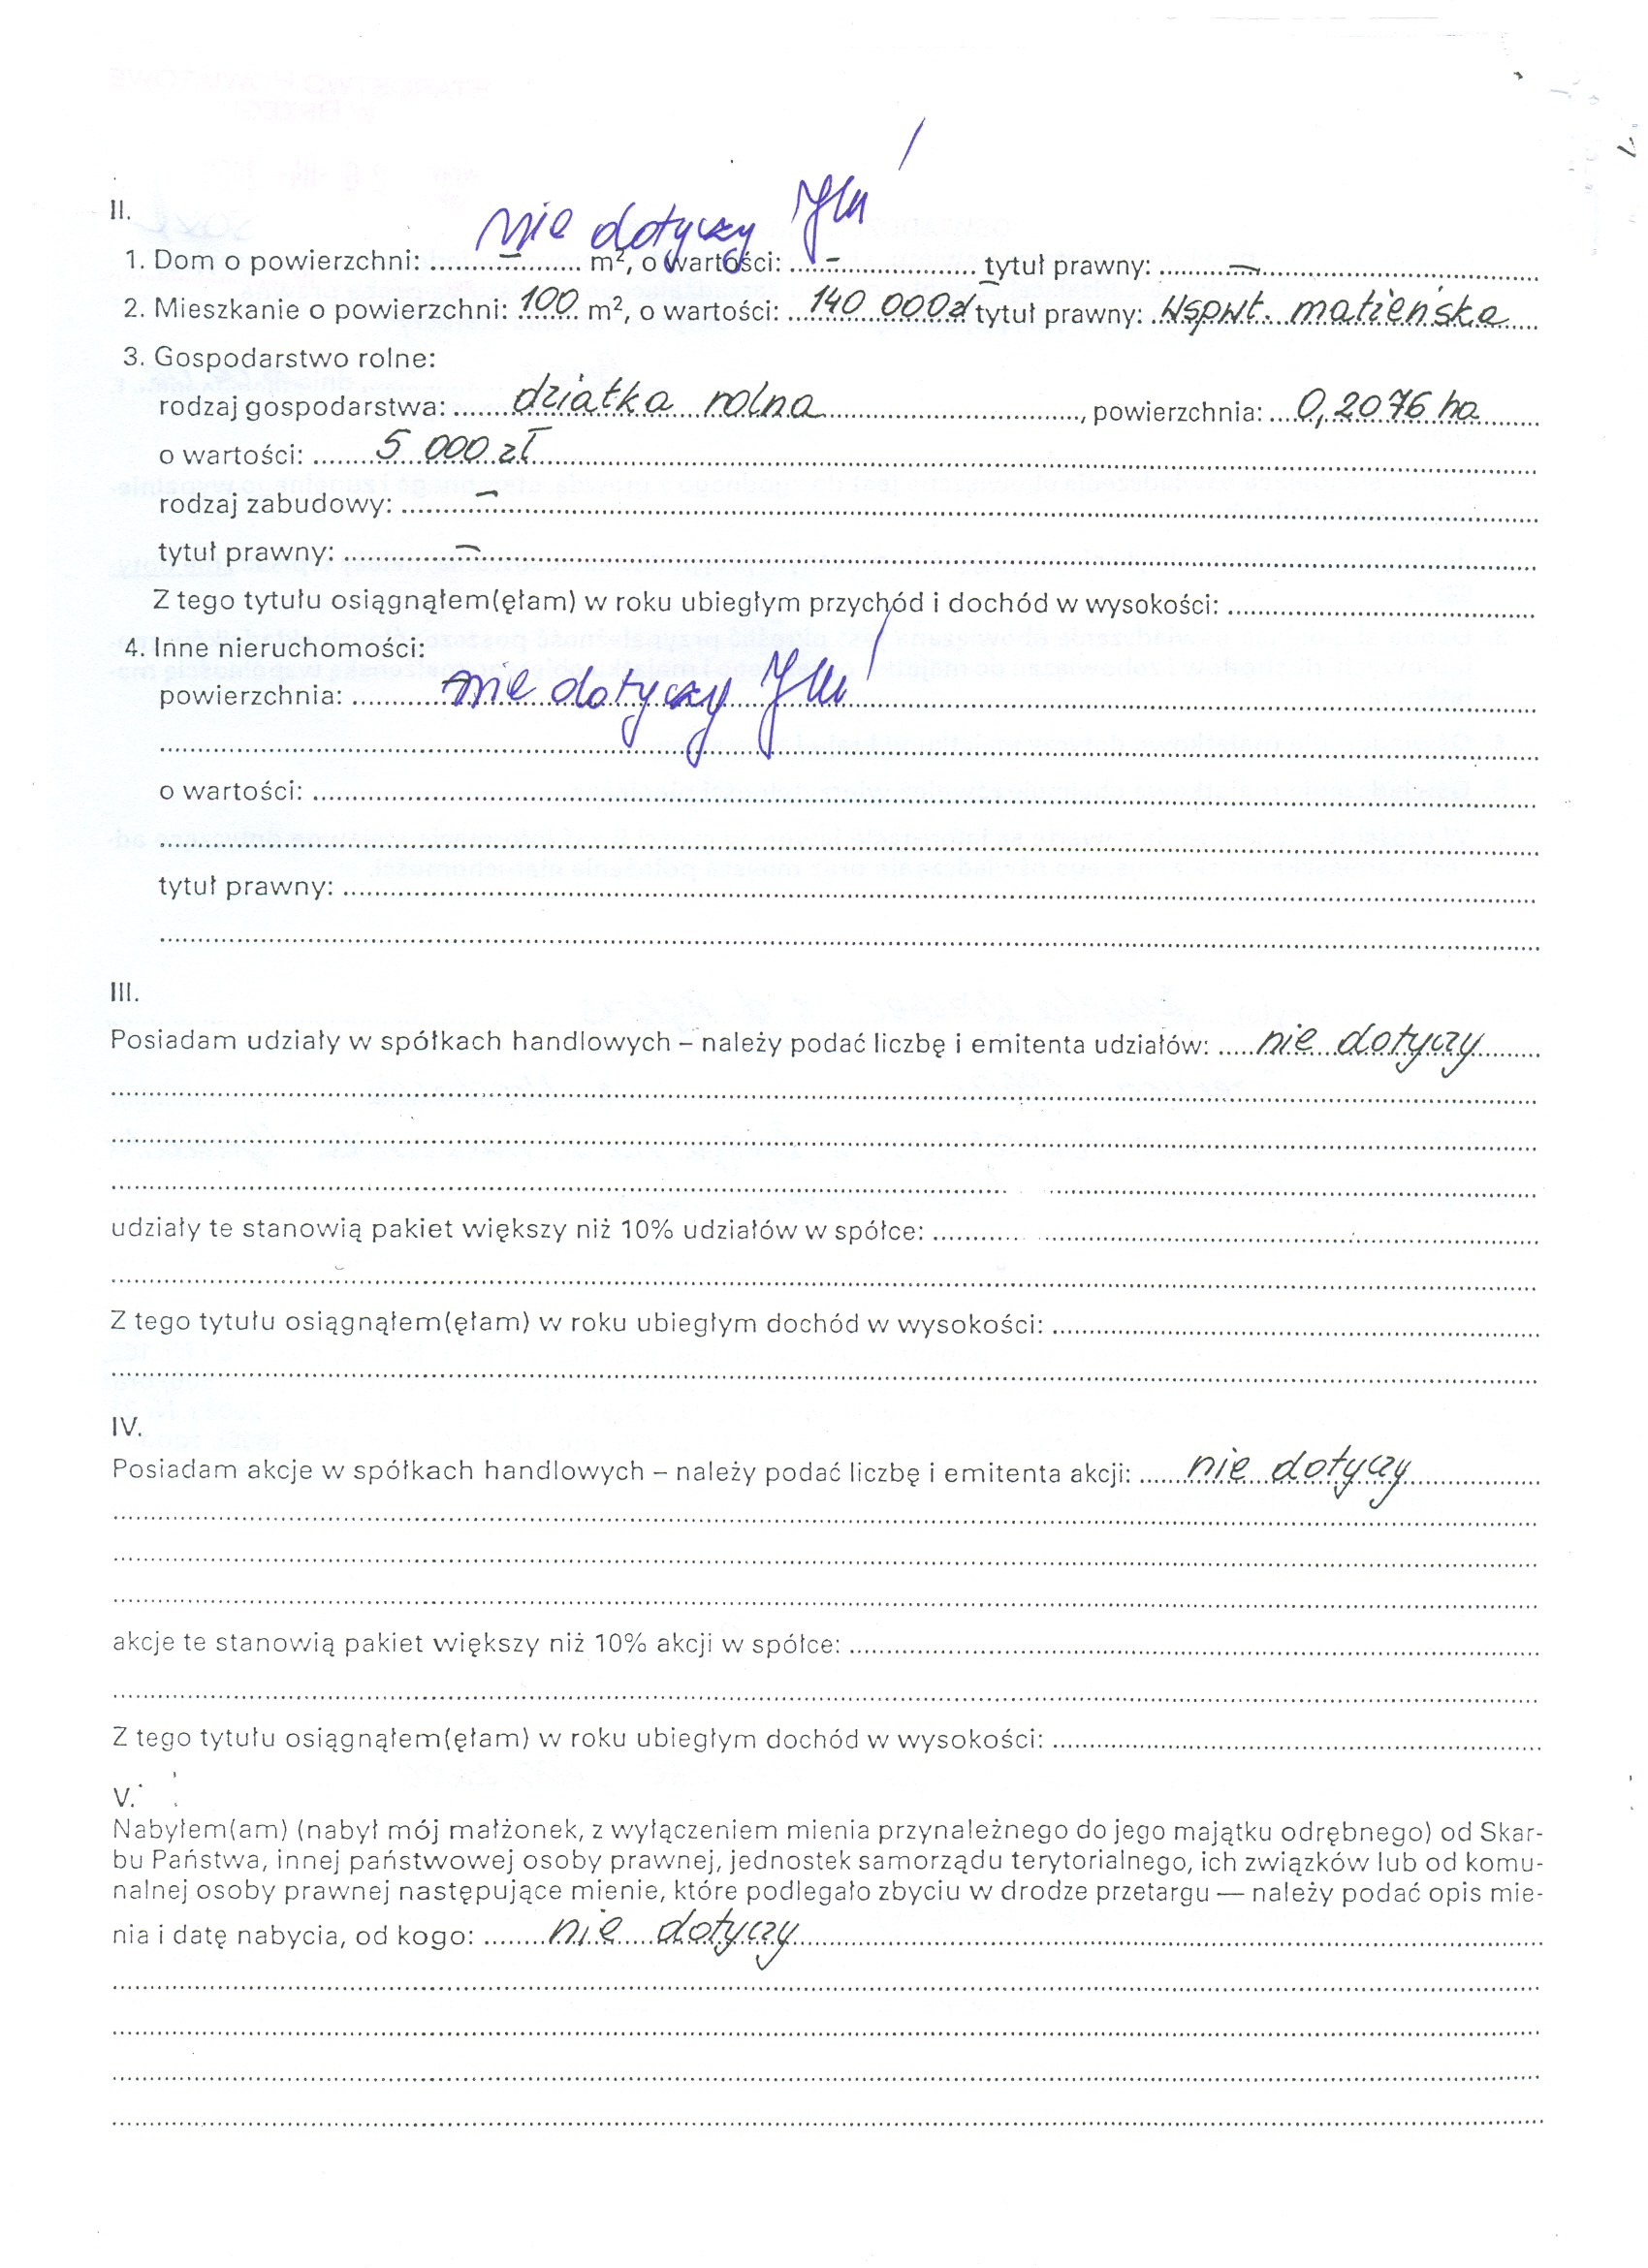 II.
nie dotyczy
1. Dom o powierzchni: – m², o wartości: – tytuł prawny: –
2. Mieszkanie o powierzchni: 100 m², o wartości: 140 000 zł tytuł prawny: wspwł. małżeńska
3. Gospodarstwo rolne:
rodzaj gospodarstwa: działka rolna, powierzchnia: 0,2076 ha
o wartości: 5 000 zł
rodzaj zabudowy: –
tytuł prawny: –
Z tego tytułu osiągnąłem(ęłam) w roku ubiegłym przychód i dochód w wysokości:
4. Inne nieruchomości:
powierzchnia: nie dotyczy
o wartości:
tytuł prawny:
III.
Posiadam udziały w spółkach handlowych – należy podać liczbę i emitenta udziałów: nie dotyczy
udziały te stanowią pakiet większy niż 10% udziałów w spółce:
Z tego tytułu osiągnąłem(ęłam) w roku ubiegłym dochód w wysokości:
IV.
Posiadam akcje w spółkach handlowych – należy podać liczbę i emitenta akcji: nie dotyczy
akcje te stanowią pakiet większy niż 10% akcji w spółce:
Z tego tytułu osiągnąłem(ęłam) w roku ubiegłym dochód w wysokości:
V.
Nabyłem(am) (nabył mój małżonek, z wyłączeniem mienia przynależnego do jego majątku odrębnego) od Skar-
bu Państwa, innej państwowej osoby prawnej, jednostek samorządu terytorialnego, ich związków lub od komu-
nalnej osoby prawnej następujące mienie, które podlegało zbyciu w drodze przetargu — należy podać opis mie-
nia i datę nabycia, od kogo: nie dotyczy